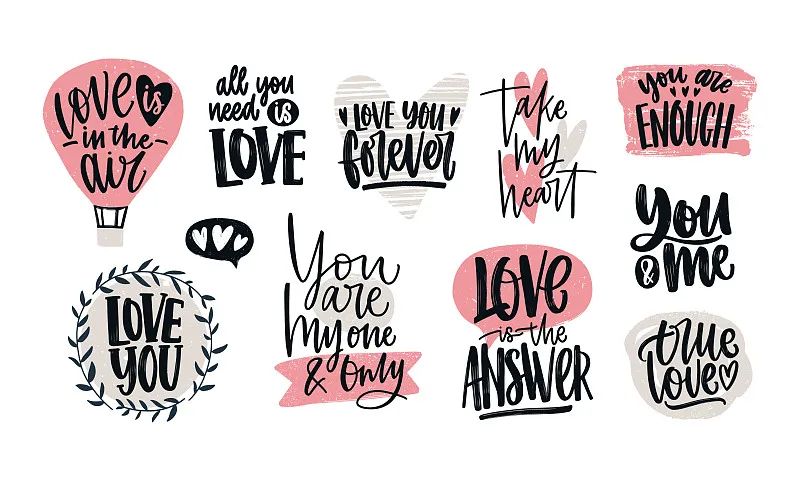 Love is
in the
air
all you
need is
LOVE
LOVE YOU
forever
take
my
heart
you are
ENOUGH
You
& me
LOVE
YOU
You
are
my one
& Only
LOVE
is the
ANSWER
true
love